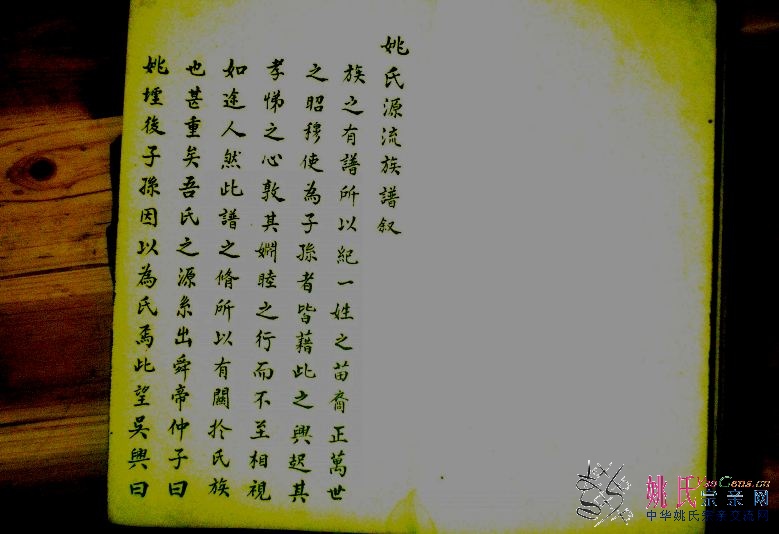 姚氏源流族譜叙
族之有譜所以紀一姓之苗裔正萬世
之昭穆使為子孫者皆藉此之興起其
孝悌之心敦其婣睦之行而不至相視
如途人然此譜之脩所以有關於氏族
也甚重矣吾氏之源系出舜帝仲子曰
姚墟後子孫因以為氏焉此望吳興曰
姚氏宗亲网
YaoGens.cn
中华姚氏宗亲交流网